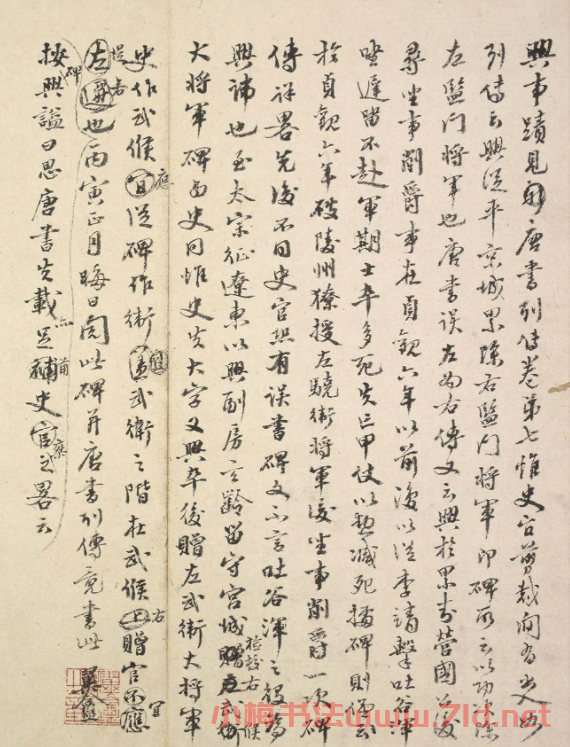 興事蹟見唐書列傳卷第七惟史官剪裁间有出入如
列傳云興從平京城累除右監門将軍即碑所云以功除
左監門将軍也唐書误左为右傳又云興於累封營國公後
尋坐事削爵事在貞觀六年以前後以從李靖擊吐谷渾
坐遲留不赴軍期士卒多死失亡甲仗以勲减死據碑則但云
於貞觀六年破陵州獠授左驍衛将軍後坐事削爵一项碑
傳详畧先後不同史官縱有误書碑文不言吐谷渾之役为
興諱也至太宗征遼東以興副房玄齡留守宮城檢校右武候
大将軍碑与史同惟史失大字又興卒後贈左武衛大将軍
史作武候宜從碑作衛武衛之階在武候上贈官不應
左也丙寅正月晦日閱此碑并唐書列傳竟書此
按興謚曰思唐書失載足補史官之畧云
小梅书法www.7ld.net